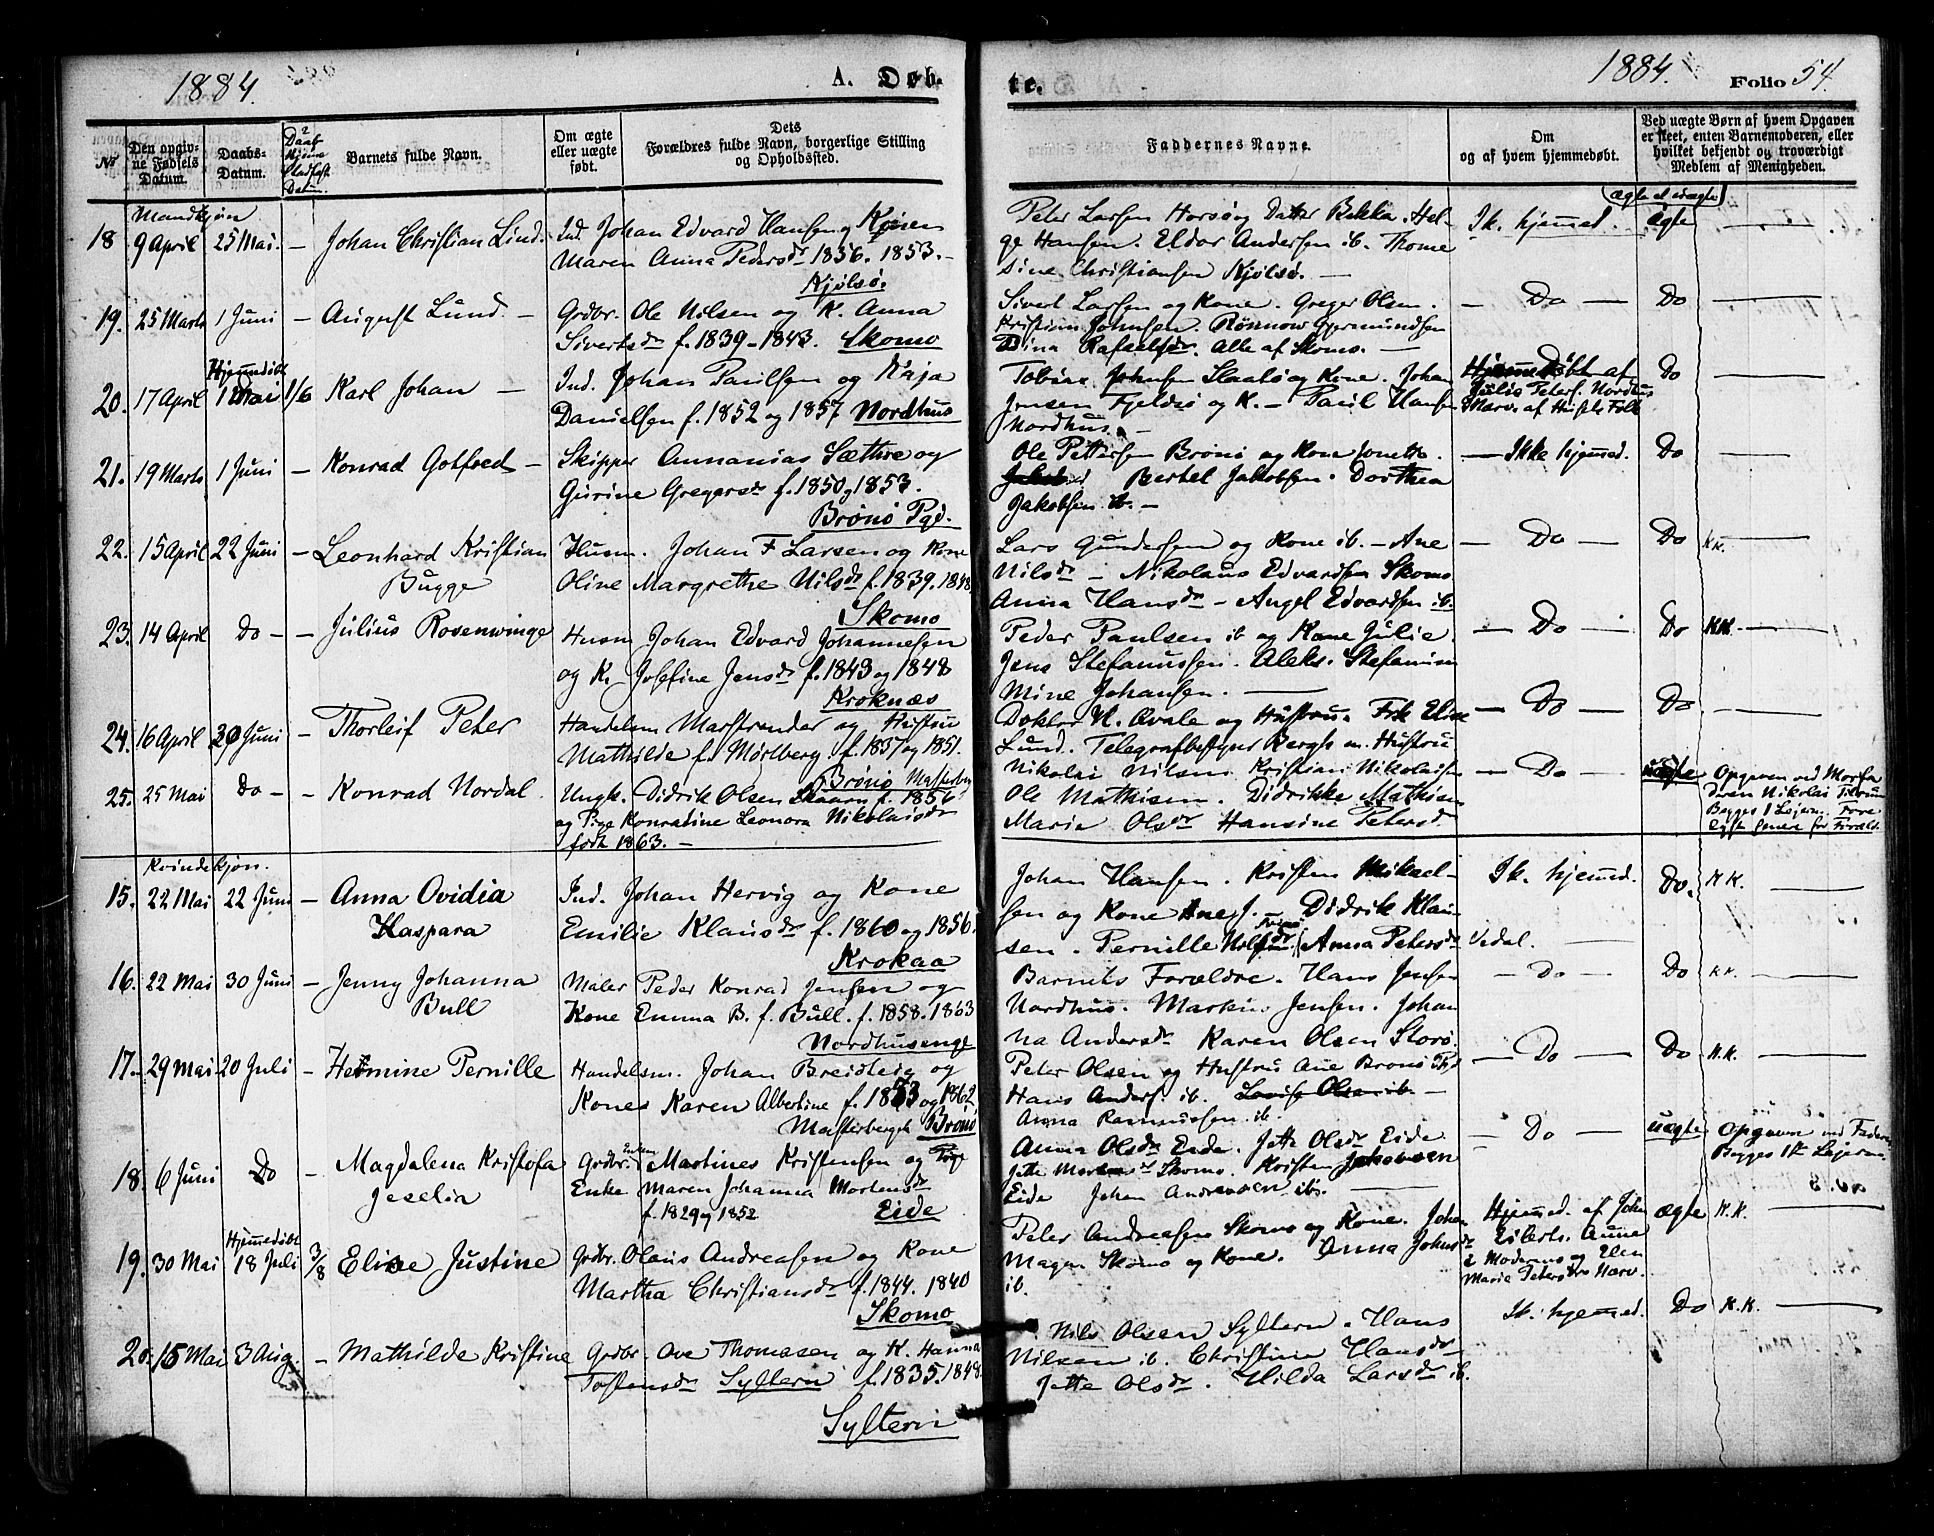 1884.
A. Døb-
te.
1884.
Folio 54.
No
Den opgiv-
ne Fødsels
Datum.
Daabs-
Datum.
Barnets fulde Navn.
Om ægte
eller uægte
født.
Dets
Forældres fulde Navn, borgerlige Stilling
og Opholdssted.
Faddernes Navne.
Om
og af hvem hjemmedøbt.
Ved uægte Børn af hvem Opgaven
er skeet, enten Barnemoderen, eller
hvilket bekjendt og troværdigt
Medlem af Menigheden.
Mandkjøn
18 9 April 25 Mai. – Johan Christian Lind. Ind. Johan Edvard Hansen og Konen
Maren Anna Pedersdr 1856. 1853. –
Kjølsø.
Peter Larsen Horsø og Datter Bekka. Hel-
ge Hansen. Eldor Andersen ib. Thome
sine Christiansen Kjølsø. –
Ik. hjemmed. Ægte
19. 25 Marts 1 Juni – August Lund. – Grdbr. Ole Nilsen og K. Anna
Sivertsdr f. 1839–1843. Skomo
Sivert Larsen og Kone. Greger Olsen.
Kristian Johnsen. Rønnow Gjermundsen
Dina Rafaelsdr. Alle af Skomo. –
– Do – Do
Hjemmedøbt
20. 17 April 1 Mai 1/6 Karl Johan – Ind. Johan Paulsen og Kaja
Danielsen f. 1852 og 1857 Nordhus
Tobias Johnsen Slaatø og Kone. Johan
Jensen Fjeldsø og K. – Paul Hansen
Nordhus. –
Hjemmedøbt af
Julie Peters. Nordhus
Do
21. 19 Marts 1 Juni – Konrad Gotfred – Skipper Annanias Sæthre og
Gurine Gregersdr f. 1850 og 1853.
Brønø Pgd.
Ole Pettersen Brønø og Kone Jonette.
Bertel Jakobsen. Dorthea
Jakobsen ib. –
– Ikke hjemmed. Do
22. 15 April 22 Juni – Leonhard Kristian
Bugge
Husm. Johan F Larsen og Kone
Oline Margrethe Nilsdr f. 1839. 1848
Skomo
Lars Gundersen og Kone ib. – Ane
Nilsdr – Nikolaus Edvardsen Skomo
Anna Hansdr – Angel Edvardsen ib.
– Do – Do KK.
23. 14 April Do – – Julius Rosenwinge Husm Johan Edvard Johannesen
og K. Josefine Jensdr f. 1843 og 1848
Kroknæs
Peder Paulsen ib og Kone Julie.
Jens Stefanussen. Aleks. Stefanisen
Mine Johansen. –
– Do – Do KK.
24. 16 April 30 Juni – Thorleif Peter Handelsm Marstrander og Hustru
Mathilde f. Mørlberg f. 1837 og 1851.
Brønø
Doktor H. Qvale og Hustru. Frk Elise
Lund. Telegrafbestyrer Bergh m. Hustru
– Do – Do
25. 25 Mai Do – – Konrad Nordal. Ungk. Didrik Olsen Skaarn f. 1856
og Pige Konradine Leonora Nikolaisdr
født 1863. –
Nikolai Nilsen Kristian Nikolaisen
Ole Mathisen. Didrikke Mathisen
Marie Olsdr Hansine Petersdr
– Do – uægte Opgaven ved Morfa
deren Nikolai
Begges 1 Lejerm.
Kvindekjøn.
15. 22 Mai 22 Juni – Anna Ovidia
Kaspara
Ind. Johan Hervig og Kone
Emilie Klausdr f. 1860 og 1856.
Krokaa
Johan Hansen. Kristen Mikael-
sen og Kone Ane J. Didrik Klau-
sen. Pernille Anna Petersdr Vedal.
Ik. hjemmed. Do. K.K.
16. 22 Mai 30 Juni – Jenny Johanna
Bull
Maler Peder Konrad Jensen og
Kone Emma B. f. Bull. f. 1858. 1863
Nordhusenge
Barnets Forældre. Hans Jensen
Nordhus. Markus Jensen. Johan
na Andersdr Karen Olsen Storø.
– Do – Do KK.
17. 29 Mai 20 Juli – Hermine Pernille Handelsm. Johan Breidteig og
Kone Karen Albertine f. 1853 og 1862
Brønø
Peter Olsen og Hustru Ane Brønø
Hans Anders. ib. Lovise Olsen ib. –
Anna Rasmussen ib.
– Do – Do K.K.
18. 6 Juni Do – Magdalena Kristofa
Jeselia
Grdbr. Enkem Martines Kristensen og Pige
Enke Maren Johanna Mortensdr
f. 1829 og 1852 Eide
Anna Olsdr Eide. Jette Olsdr Eide
Skomo. Kristen
Eide Johan Andreasen ib.
– Do – uægte Opgaven ved Faderen
Begges 1ste Lejerm.
Hjemmedøbt
19. 30 Mai 18 Juli 3/8 Eline Justine Grdbr. Olaus Andreasen og Kone
Martha Christiansdr f. 1844. 1840
Skomo
Peter Andreasen Skomo og Kone. Johan
Magen Skomo og Kone. Anna Johnsdr
ib.
Hjemmed. af John
Eilerts. Aune
og Elen
Marie Petersdr
ægte K.K.
20. 15 Mai 3 Aug. – Mathilde Kristine Grdbr. Ove Thomasen og K. Hanna
Tostensdr Syltern f. 1835. 1848.
Syltern
Nils Olsen Syltern. Hans
Nilsen ib. Christine Hansdr
Jette Olsdr. Hilda Larsdr ib.
Ik. hjemmed. Do K.K.